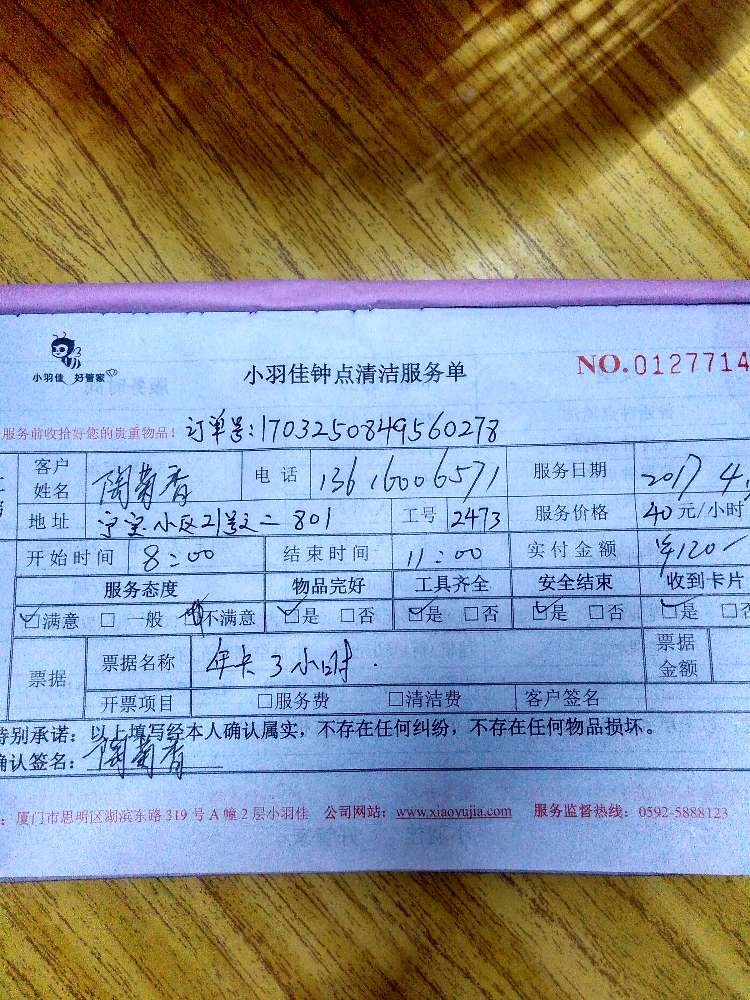 小羽佳 好管家
小羽佳钟点清洁服务单
NO.0127714
服务前收拾好您的贵重物品! 订单号:1703250849560278
客户姓名 陶菊香 电话 13616006571 服务日期 2017 4.
地址 小区21号之二 801 工号 2473 服务价格 40元/小时
开始时间 8:00 结束时间 11:00 实付金额 ¥120
服务态度 物品完好 工具齐全 安全结束 收到卡片
☑满意 □一般 不满意 ☑是 □否 ☑是 □否 ☑是 □否 ☑是 □否
票据 票据名称 年卡3小时. 票据金额
开票项目 □服务费 □清洁费 客户签名
特别承诺:以上填写经本人确认属实,不存在任何纠纷,不存在任何物品损坏。
确认签名:陶菊香
:厦门市思明区湖滨东路319号A幢2层小羽佳 公司网站:www.xiaoyujia.com 服务监督热线:0592-5888123